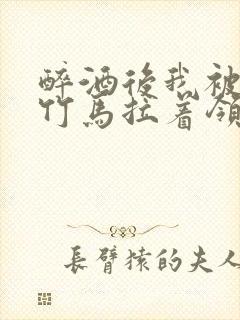 醉酒後我被
竹馬拉着領
長臂猿的夫人